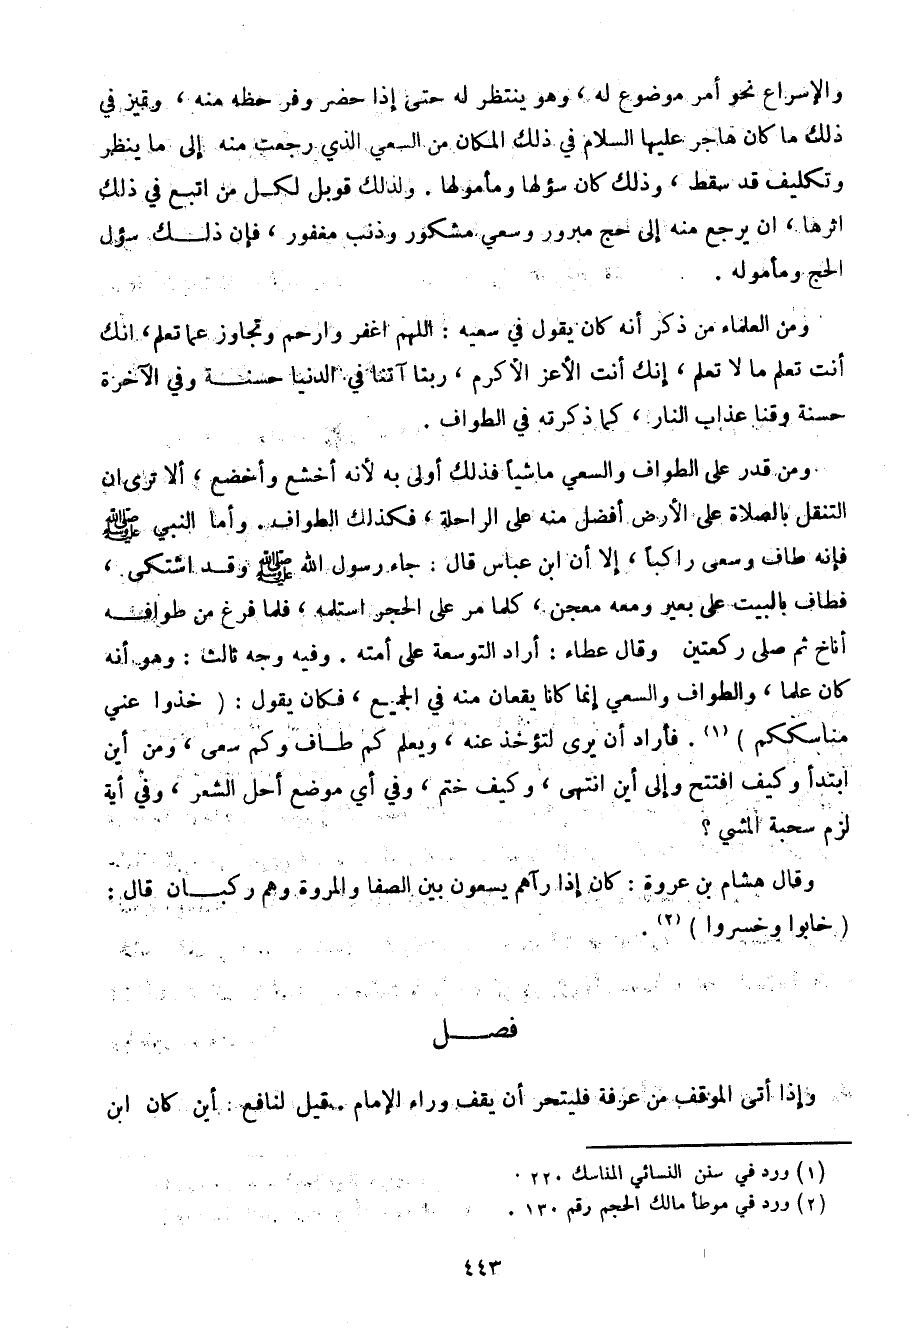 والإسراع نحو أمر موضوع له ، وهو ينتظر له حتى إذا حضر وفر حظه منه ، وتميز في
ذلك ما كان هاجر عليها السلام في ذلك المكان من السعي الذي رجعت منه إلى ما ينظر
وتكليف قد سقط ، وذلك كان سؤلها ومأمولها . ولذلك قوبل لكل من اتبع في ذلك
اثرها ، ان يرجع منه إلى حج مبرور وسعي مشكور وذنب مغفور ، فإن ذلك سؤل
الحج ومأموله .
ومن العلماء من ذكر أنه كان يقول في سعيه : اللهم اغفر وارحم وتجاوز عما تعلم ، انك
أنت تعلم ما لا تعلم ، إنك أنت الأعز الأكرم ، ربنا آتنا في الدنيا حسنة وفي الآخرة
حسنة وقنا عذاب النار ، كما ذكرته في الطواف .
ومن قدر على الطواف والسعي ماشياً فذلك أولى به لأنه أخشع وأخضع ، ألا ترى ان
التنقل بالصلاة على الأرض أفضل منه على الراحلة ، فكذلك الطواف . وأما النبي ﷺ
فإنه طاف وسعى راكباً ، إلا أن ابن عباس قال : جاء رسول الله ﷺ وقد اشتكى ،
فطاف بالبيت على بعير ومعه معجن ، كلما مر على الحجر استلمه ، فلما فرغ من طوافه
أناخ ثم صلى ركعتين وقال عطاء : أراد التوسعة على أمته . وفيه وجه ثالث : وهو أنه
كان علما ، والطواف والسعي إنما كانا يقعان منه في الجميع ، فكان يقول : ( خذوا عني
مناسككم ) (١) . فأراد أن يرى لتؤخذ عنه ، ويعلم كم طاف وكم سعى ، ومن أين
ابتدأ وكيف افتتح وإلى أين انتهى ، وكيف ختم ، وفي أي موضع أحل الشعر ، وفي أية
لزم سحبة المشي ؟
وقال هشام بن عروة : كان إذا رآهم يسعون بين الصفا والمروة وهم ركبان قال :
( خابوا وخسروا ) (٢) .
فصل
وإذا أتى الموقف من عرفة فليتحر أن يقف وراء الإمام . قيل لنافع : أين كان ابن
(١) ورد في سنن النسائي المناسك ٢٢٠ .
(٢) ورد في موطأ مالك الحجم رقم ١٣٠ .
٤٤٣